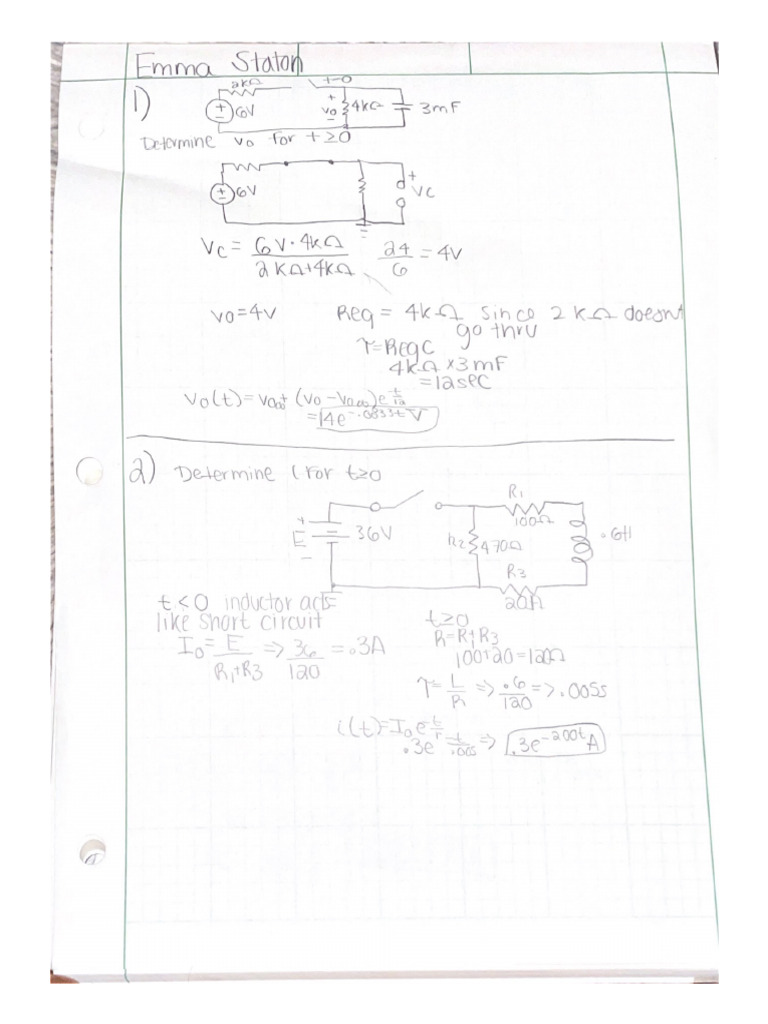 Emma Staton
1)
2kΩ
t=0
6V
+
vo
-
4kΩ
3mF
Determine vo for t≥0
6V
+
VC
Vc = 6V·4kΩ / 2kΩ+4kΩ 24/6 = 4V
vo=4V Req = 4kΩ since 2kΩ doesnt
go thru
τ=ReqC
4kΩ x 3mF
= 12sec
Vo(t) = Vo∞+ (Vo - Vo∞)e^-t/12
= 4e^-.0833t V
2) Determine i for t≥0
R1
100Ω
+
E
-
36V
R2
470Ω
.6H
R3
20Ω
t<0 inductor acts
like short circuit
I0= E / R1+R3 => 36/120 = .3A
t≥0
R=R1+R3
100+20=120Ω
τ= L/R => .6/120 => .005s
i(t)=I0e^-t/τ
.3e^-t/.005 => .3e^-200t A